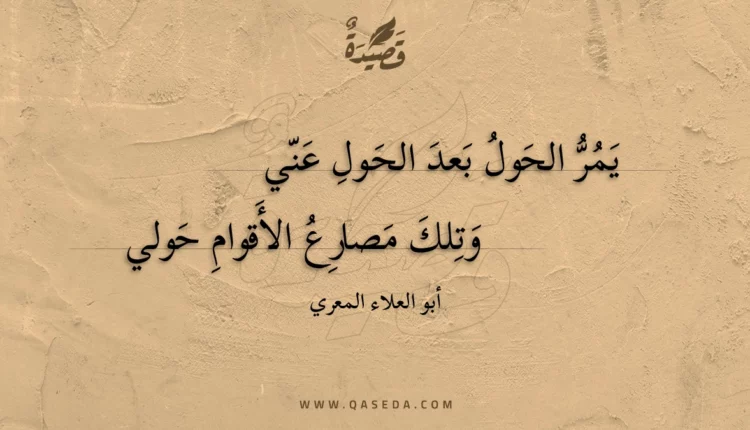 قَصِيْدَةٌ
يَمُرُّ الحَولُ بَعدَ الحَولِ عَنّي
وَتِلكَ مَصارِعُ الأَقوامِ حَولي
أبو العلاء المعري
WWW.QASEDA.COM